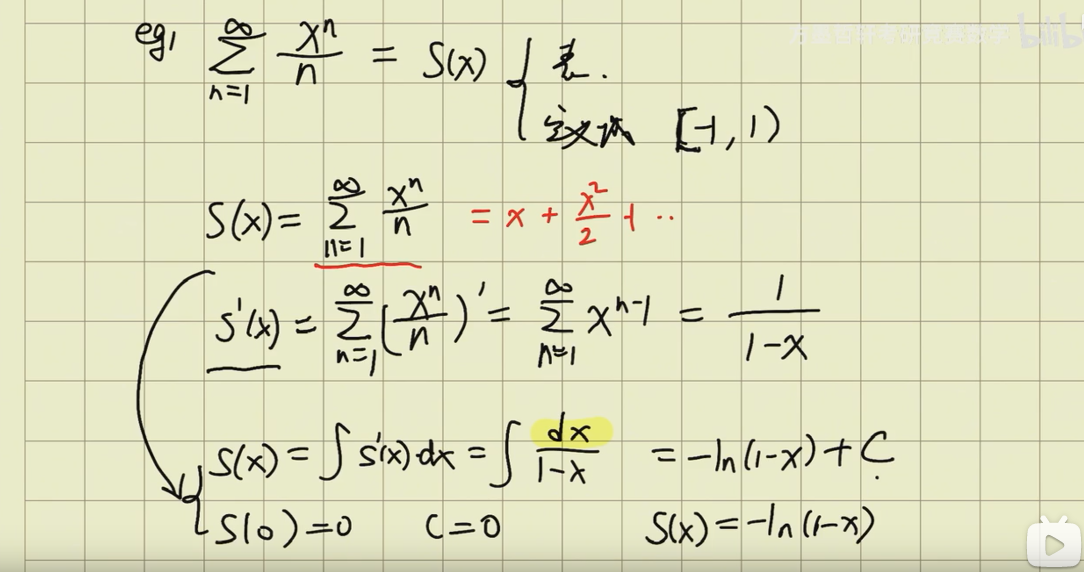 eg1 ∑_{n=1}^{∞} x^n/n = S(x) {
定义域 [-1, 1)
S(x) = ∑_{n=1}^{∞} x^n/n = x + x^2/2 + ··
S'(x) = ∑_{n=1}^{∞} (x^n/n)' = ∑_{n=1}^{∞} x^{n-1} = 1/(1-x)
S(x) = ∫ S'(x)·dx = ∫ dx/(1-x) = -ln(1-x) + C.
S(0) = 0 C = 0 S(x) = -ln(1-x)